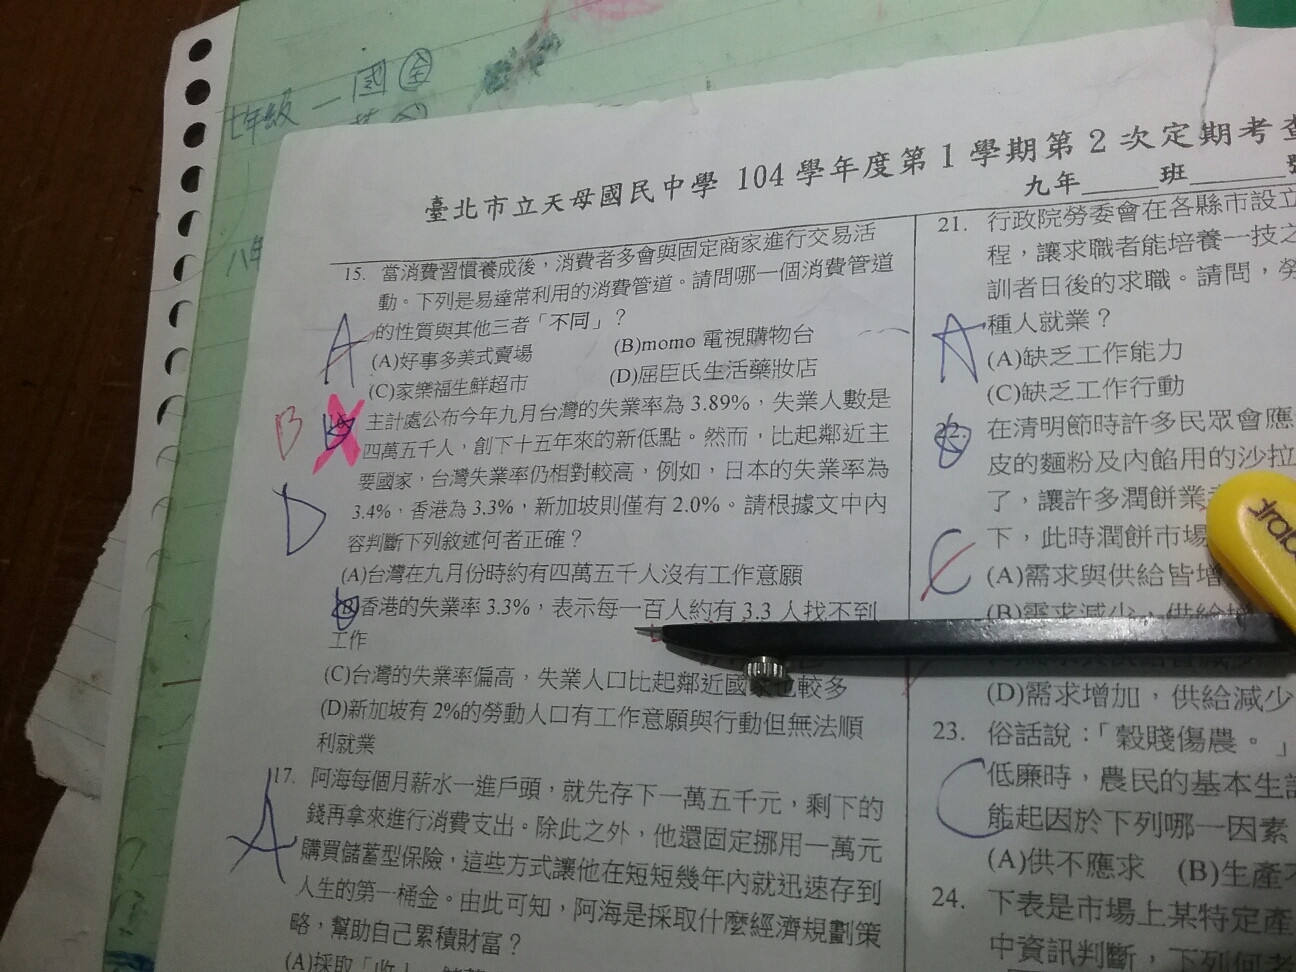 七年級 一 國 全
八年
臺北市立天母國民中學 104 學年度第 1 學期第 2 次定期考查
九年 班
15. 當消費習慣養成後，消費者多會與固定商家進行交易活
動。下列是易達常利用的消費管道。請問哪一個消費管道
的性質與其他三者「不同」？
A
(A)好事多美式賣場 (B)momo 電視購物台
(C)家樂福生鮮超市 (D)屈臣氏生活藥妝店
B
主計處公布今年九月台灣的失業率為 3.89%，失業人數是
四萬五千人，創下十五年來的新低點。然而，比起鄰近主
要國家，台灣失業率仍相對較高，例如，日本的失業率為
D
3.4%，香港為 3.3%，新加坡則僅有 2.0%。請根據文中內
容判斷下列敘述何者正確？
(A)台灣在九月份時約有四萬五千人沒有工作意願
(B)香港的失業率 3.3%，表示每一百人約有 3.3 人找不到
工作
(C)台灣的失業率偏高，失業人口比起鄰近國家也較多
(D)新加坡有 2%的勞動人口有工作意願與行動但無法順
利就業
A
17. 阿海每個月薪水一進戶頭，就先存下一萬五千元，剩下的
錢再拿來進行消費支出。除此之外，他還固定挪用一萬元
購買儲蓄型保險，這些方式讓他在短短幾年內就迅速存到
人生的第一桶金。由此可知，阿海是採取什麼經濟規劃策
略，幫助自己累積財富？
(A)採取「收入
21. 行政院勞委會在各縣市設立
程，讓求職者能培養一技之
訓者日後的求職。請問，勞
種人就業？
A
(A)缺乏工作能力
(C)缺乏工作行動
22. 在清明節時許多民眾會應
皮的麵粉及內餡用的沙拉
了，讓許多潤餅業
下，此時潤餅市場
C
(A)需求與供給皆增
(B)需求減少，供給增
(D)需求增加，供給減少
23. 俗話說：「穀賤傷農。」
C
低廉時，農民的基本生
能起因於下列哪一因素
(A)供不應求 (B)生產
24. 下表是市場上某特定產
中資訊判斷，下列何者